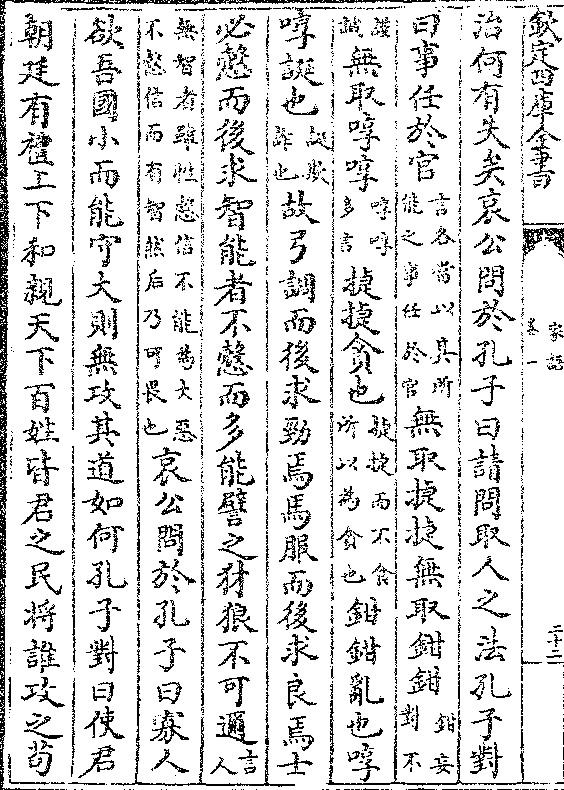 欽定四庫全書
家語
卷一
二十二
治何有失矣哀公問於孔子曰請問取人之法孔子對
曰事任於官言各當以其所能之事任於官無取捷捷無取鉗鉗鉗妄對不
謹誠無取啍啍啍啍多言捷捷貪也捷捷而不食所以為貪也鉗鉗亂也啍
啍誕也誕欺詐也故弓調而後求勁焉馬服而後求良焉士
必慤而後求智能者不慤而多能譬之豺狼不可邇言人
無智者雖性慤信不能為大惡不慤信而有智然后乃可畏也哀公問於孔子曰寡人
欲吾國小而能守大則無攻其道如何孔子對曰使君
朝廷有禮上下和親天下百姓皆君之民將誰攻之苟